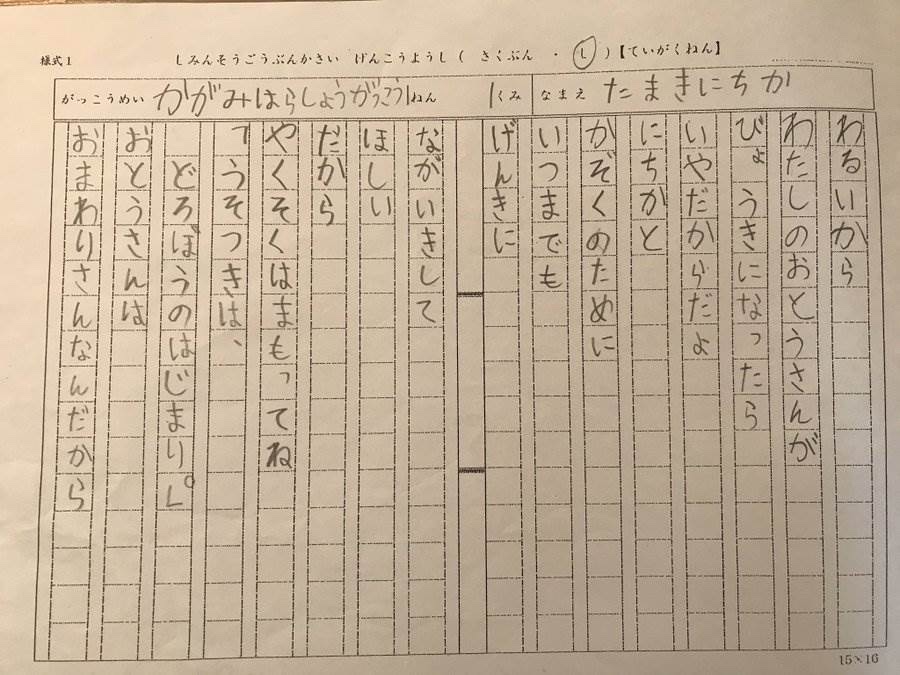 様式1
しみんそうごうぶんかさい げんこうようし ( さくぶん ・ し ) 【ていがくねん】
がっこうめい かがみはらしょうがっこう 1 ねん 1 くみ なまえ たまきにちか
わるいから
わたしのおとうさんが
びょうきになったら
いやだからだよ
にちかと
かぞくのために
いつまでも
げんきに
ながいきして
ほしい
だから
やくそくはまもってね
「うそつきは、
どろぼうのはじまり。」
おとうさんは
おまわりさんなんだから
15×16